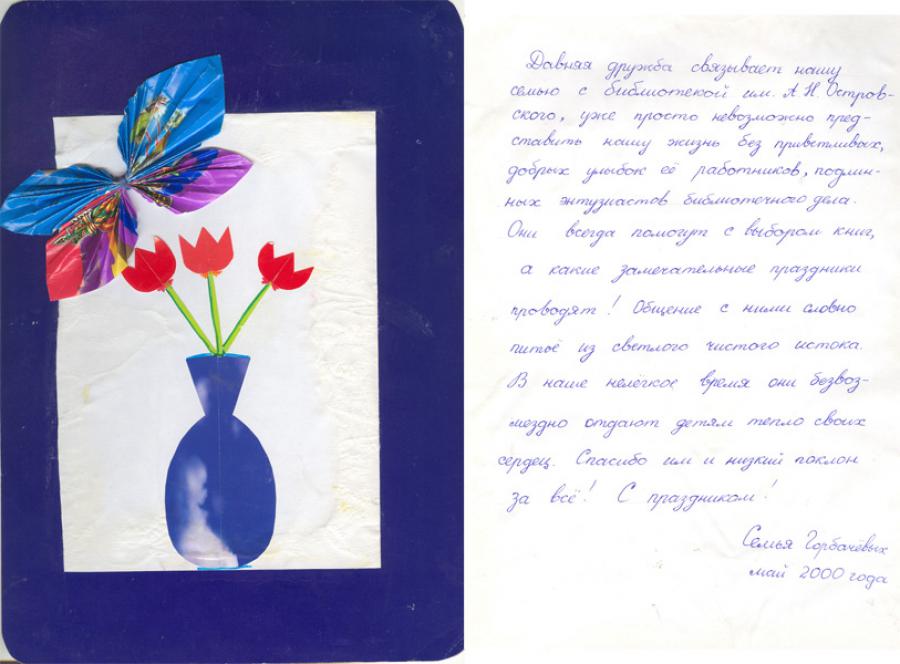 Давняя дружба связывает нашу
семью с библиотекой им. А.Н. Остров-
ского, уже просто невозможно пред-
ставить нашу жизнь без приветливых,
добрых улыбок её работников, подлин-
ных энтузиастов библиотечного дела.
Они всегда помогут с выбором книг,
а какие замечательные праздники
проводят! Общение с ними словно
питьё из светлого чистого истока.
В наше нелёгкое время они безвоз-
мездно отдают детям тепло своих
сердец. Спасибо им и низкий поклон
за всё! С праздником!
Семья Горбачёвых
май 2000 года